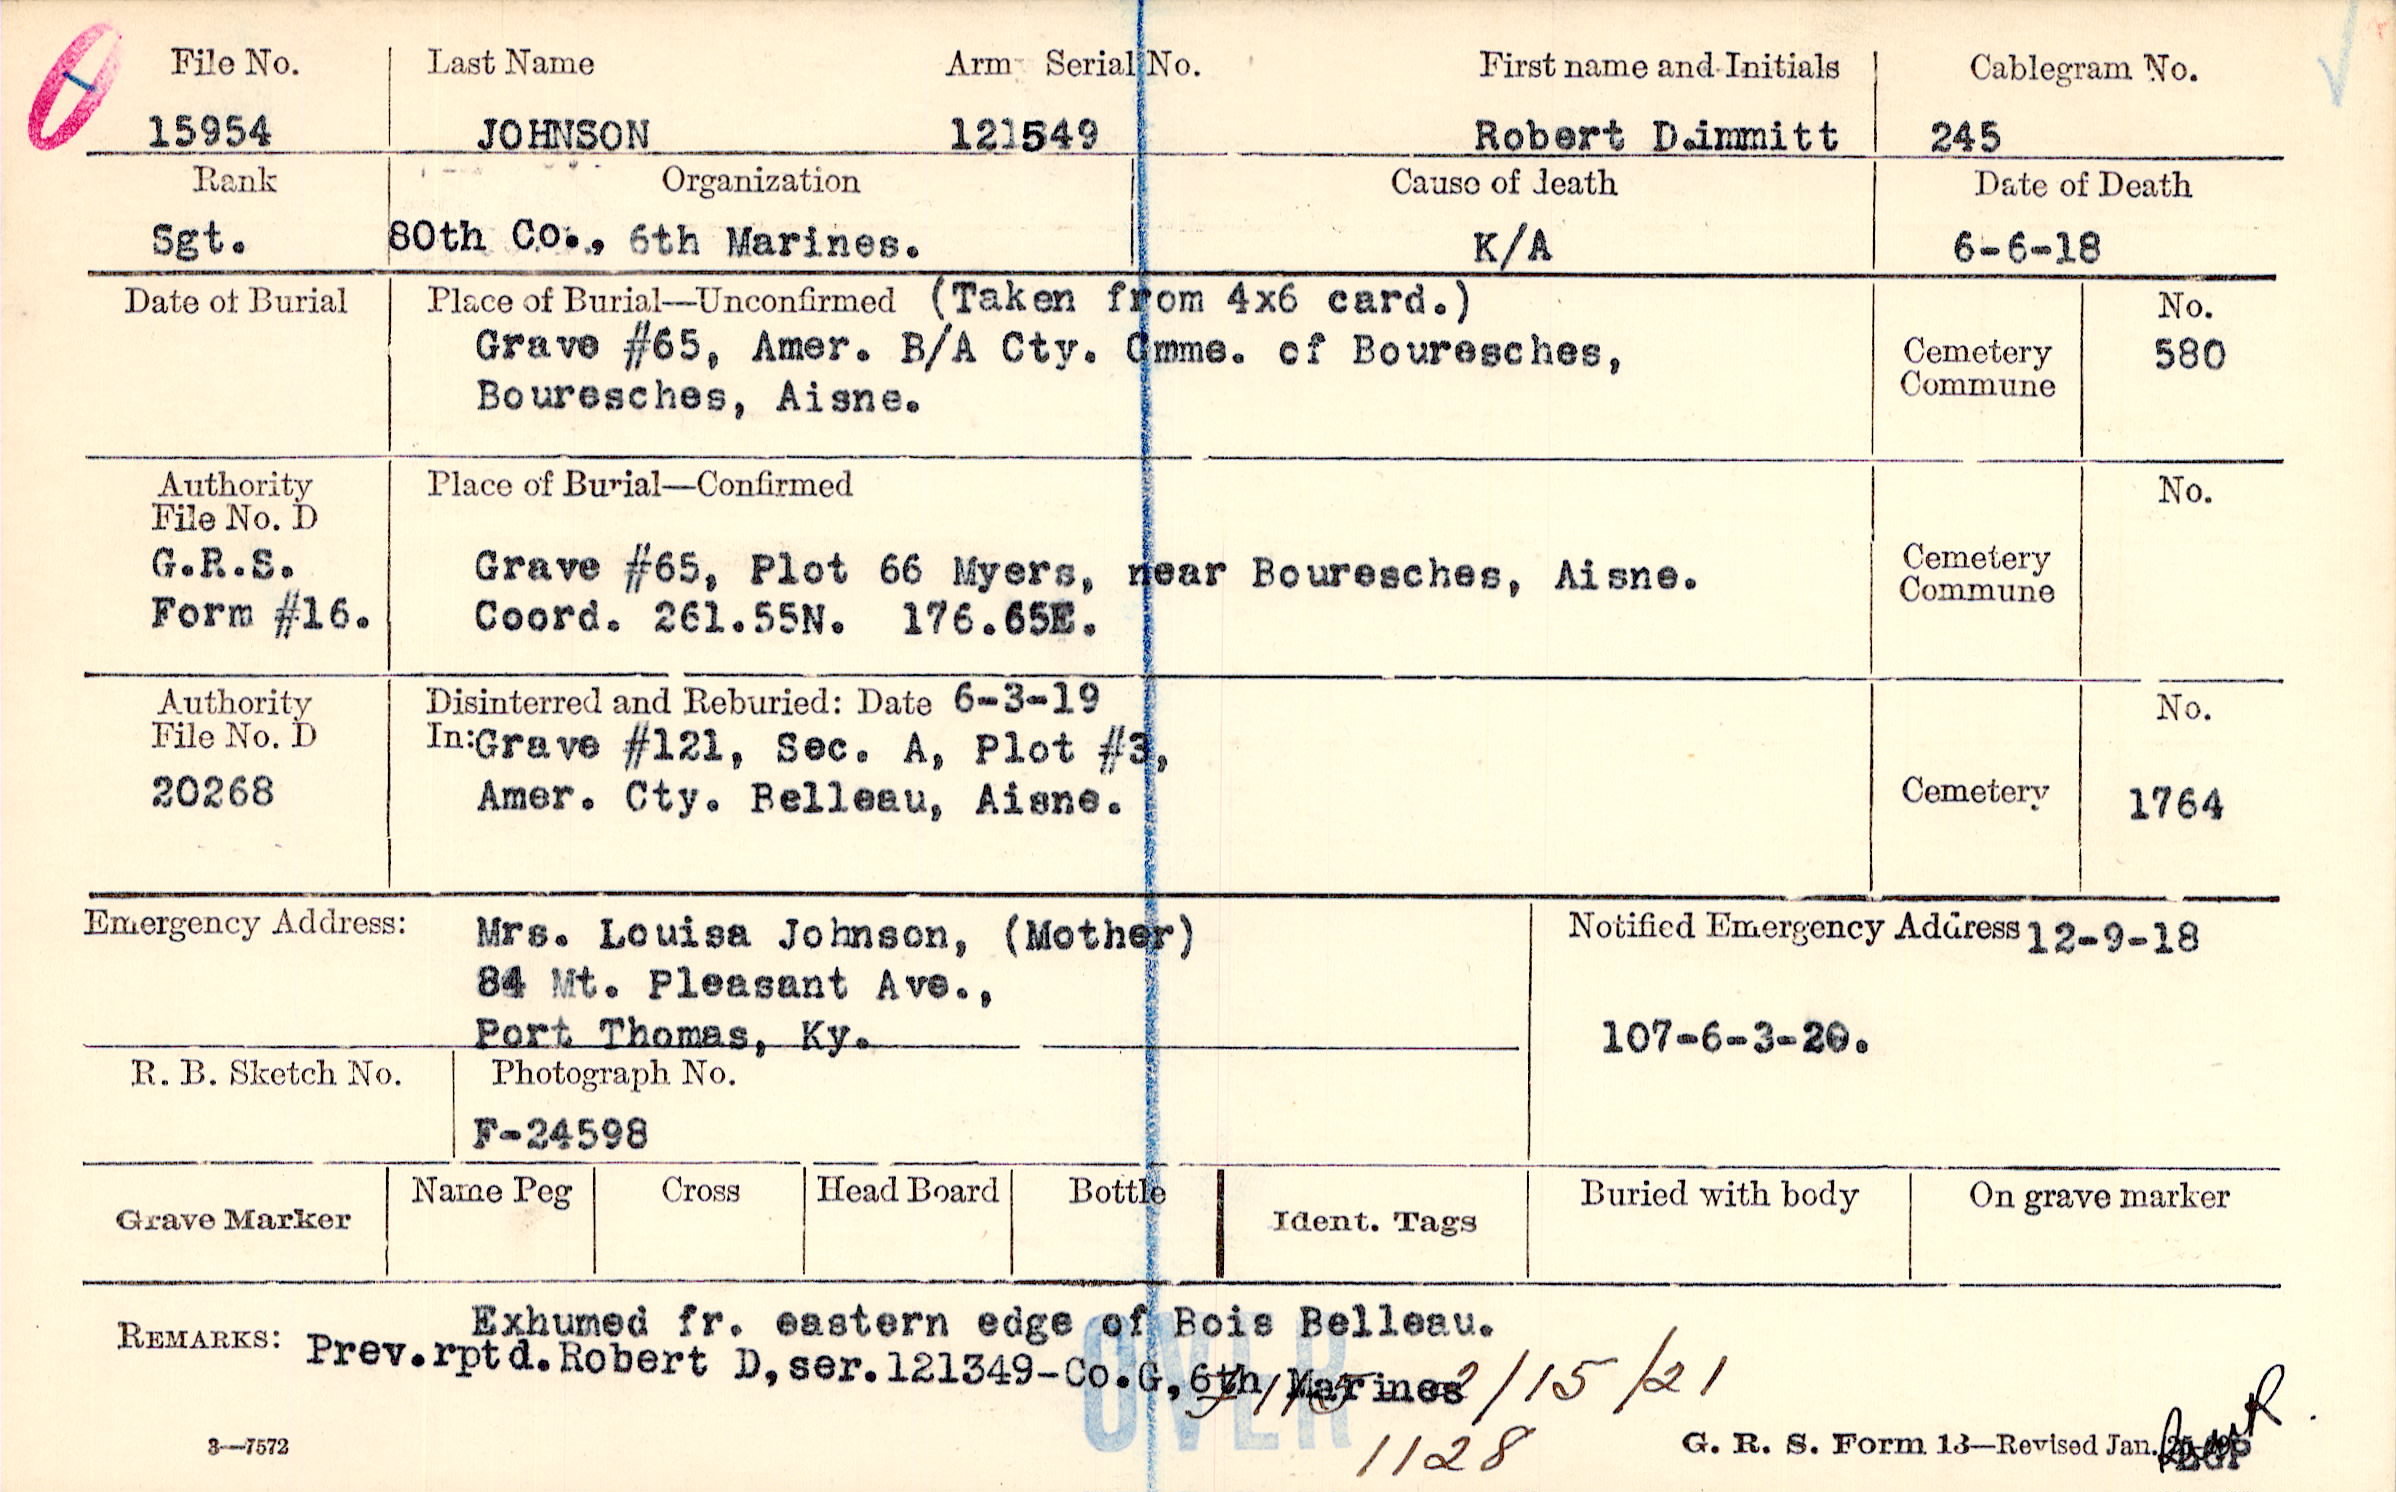 File No. Last Name Arm Serial No. First name and Initials Cablegram No.
15954 JOHNSON 121549 Robert D.immitt 245
Rank Organization Cause of death Date of Death
Sgt. 80th Co., 6th Marines. K/A 6-6-18
Date of Burial Place of Burial—Unconfirmed (Taken from 4x6 card.) No.
Grave #65, Amer. B/A Cty. Cmme. of Bouresches, Cemetery 580
Bouresches, Aisne. Commune
Authority Place of Burial—Confirmed No.
File No. D
G.R.S. Grave #65, Plot 66 Myers, near Bouresches, Aisne. Cemetery
Form #16. Coord. 261.55N. 176.65E. Commune
Authority Disinterred and Reburied: Date 6-3-19 No.
File No. D In: Grave #121, Sec. A, Plot #3,
20268 Amer. Cty. Belleau, Aisne. Cemetery 1764
Emergency Address: Mrs. Louisa Johnson, (Mother) Notified Emergency Address 12-9-18
84 Mt. Pleasant Ave.,
Port Thomas, Ky. 107-6-3-20.
R. B. Sketch No. Photograph No.
F-24598
Grave Marker Name Peg Cross Head Board Bottle Ident. Tags Buried with body On grave marker
REMARKS: Exhumed fr. eastern edge of Bois Belleau.
Prev.rptd.Robert D, ser.121349-Co.G, 6th Marines 2/15/21
OVER
1128
3—7572 G. R. S. Form 13—Revised Jan.